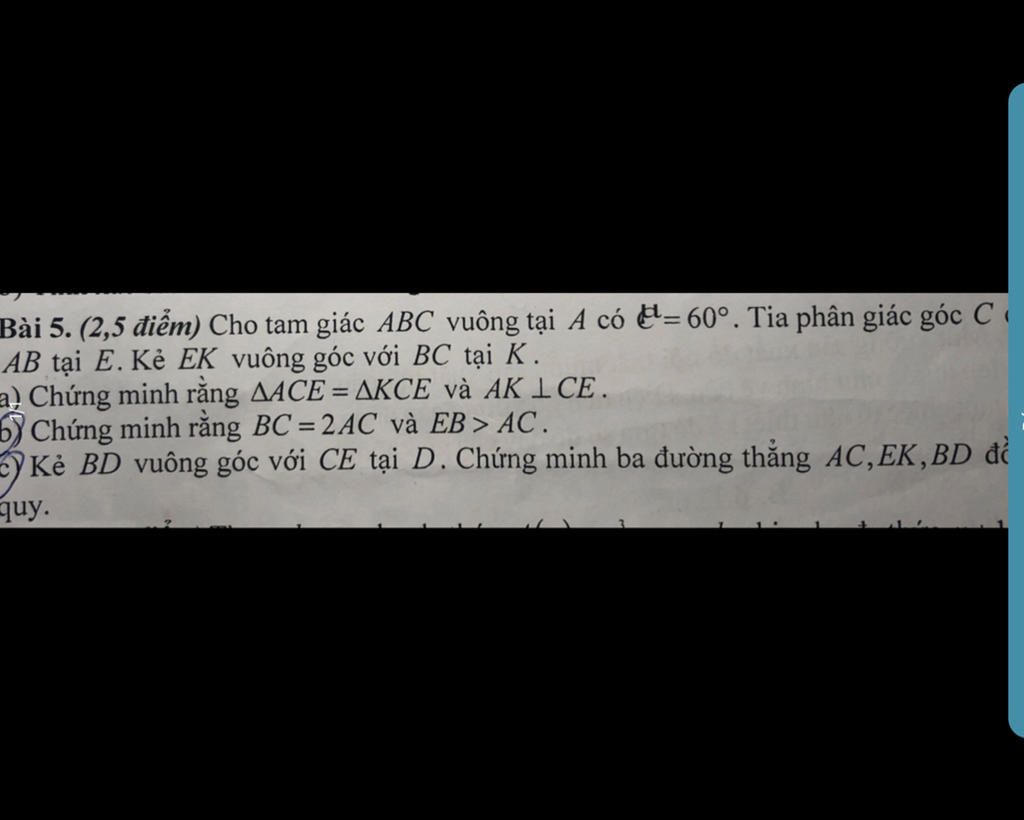 Bài 5. (2,5 điểm) Cho tam giác ABC vuông tại A có = 60°. Tia phân giác góc C
AB tại E. Kẻ EK vuông góc với BC tại K.
a) Chứng minh rằng ΔACE = ΔKCE và AK ⊥ CE.
b) Chứng minh rằng BC = 2AC và EB > AC.
c) Kẻ BD vuông góc với CE tại D. Chứng minh ba đường thẳng AC, EK, BD
quy.